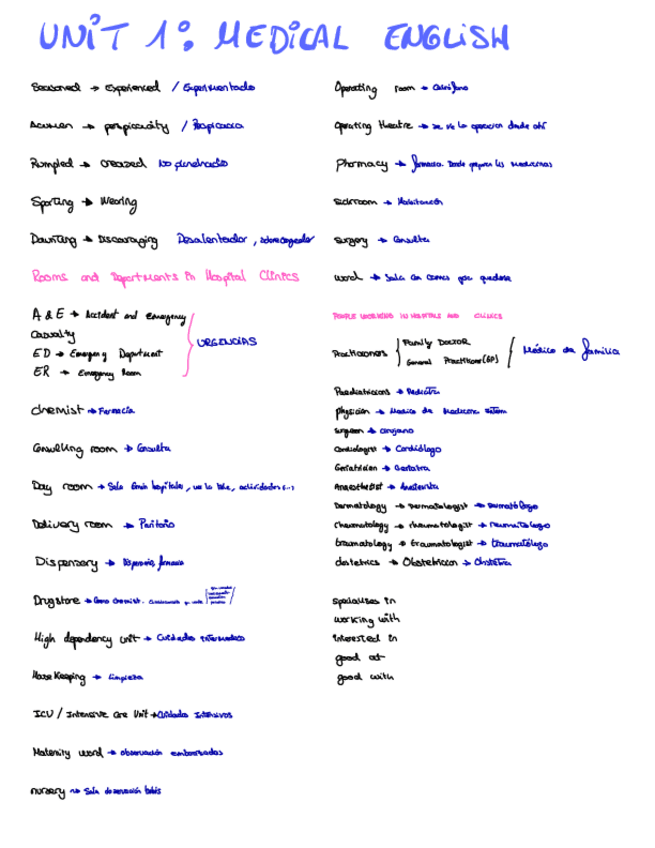 UNIT 1: MEDICAL ENGLISH
Seasoned → Experienced / Experimentado
Acumen → perspicacity / Perspicacia
Rumpled → creased No planchado
Sporting → Wearing
Daunting → Discouraging Desalentador, sobrecogedor
Rooms and Departments in Hospital Clinics
A & E → Accident and emergency
Casualty
ED → Emergency Department
ER → Emergency Room
URGENCIAS
chemist → Farmacia
Consulting room → Consulta
Day room → Sala hospitales, ve la tele, actividades (...)
Delivery room → Paritorio
Dispensary → farmacia
Drugstore → Como chemist.
High dependency unit → Cuidados intermedios
House Keeping → Limpieza
ICU / Intensive Care Unit → Cuidados Intensivos
Maternity word → observación embarazadas
nursery → Sala observación bebés
Operating room → Quirófano
Operating theatre → se ve la operacion desde ahí
Pharmacy → farmacia. Donde preparan las medicinas
Sickroom → Habitación
surgery → Consulta
word → Sala con camas para quedarse
PEOPLE WORKING IN HOSPITALS AND CLINICS
Practitioners
Family DOCTOR
General Practitioner (GP)
Médico de familia
Paediatricians → Pediatra
physician → Medico de Medicina interna
surgeon → cirujano
Cardiologist → Cardiólogo
Geriatrician → Geriatra
Anaesthetist → Anestesista
Dermatology → Dermatologist → Dermatólogo
rheumatology → rheumatologist → reumatólogo
traumatology → traumatologist → traumatólogo
obstetrics → Obstetrician → Obstetra
specialises in
working with
interested in
good at
good with